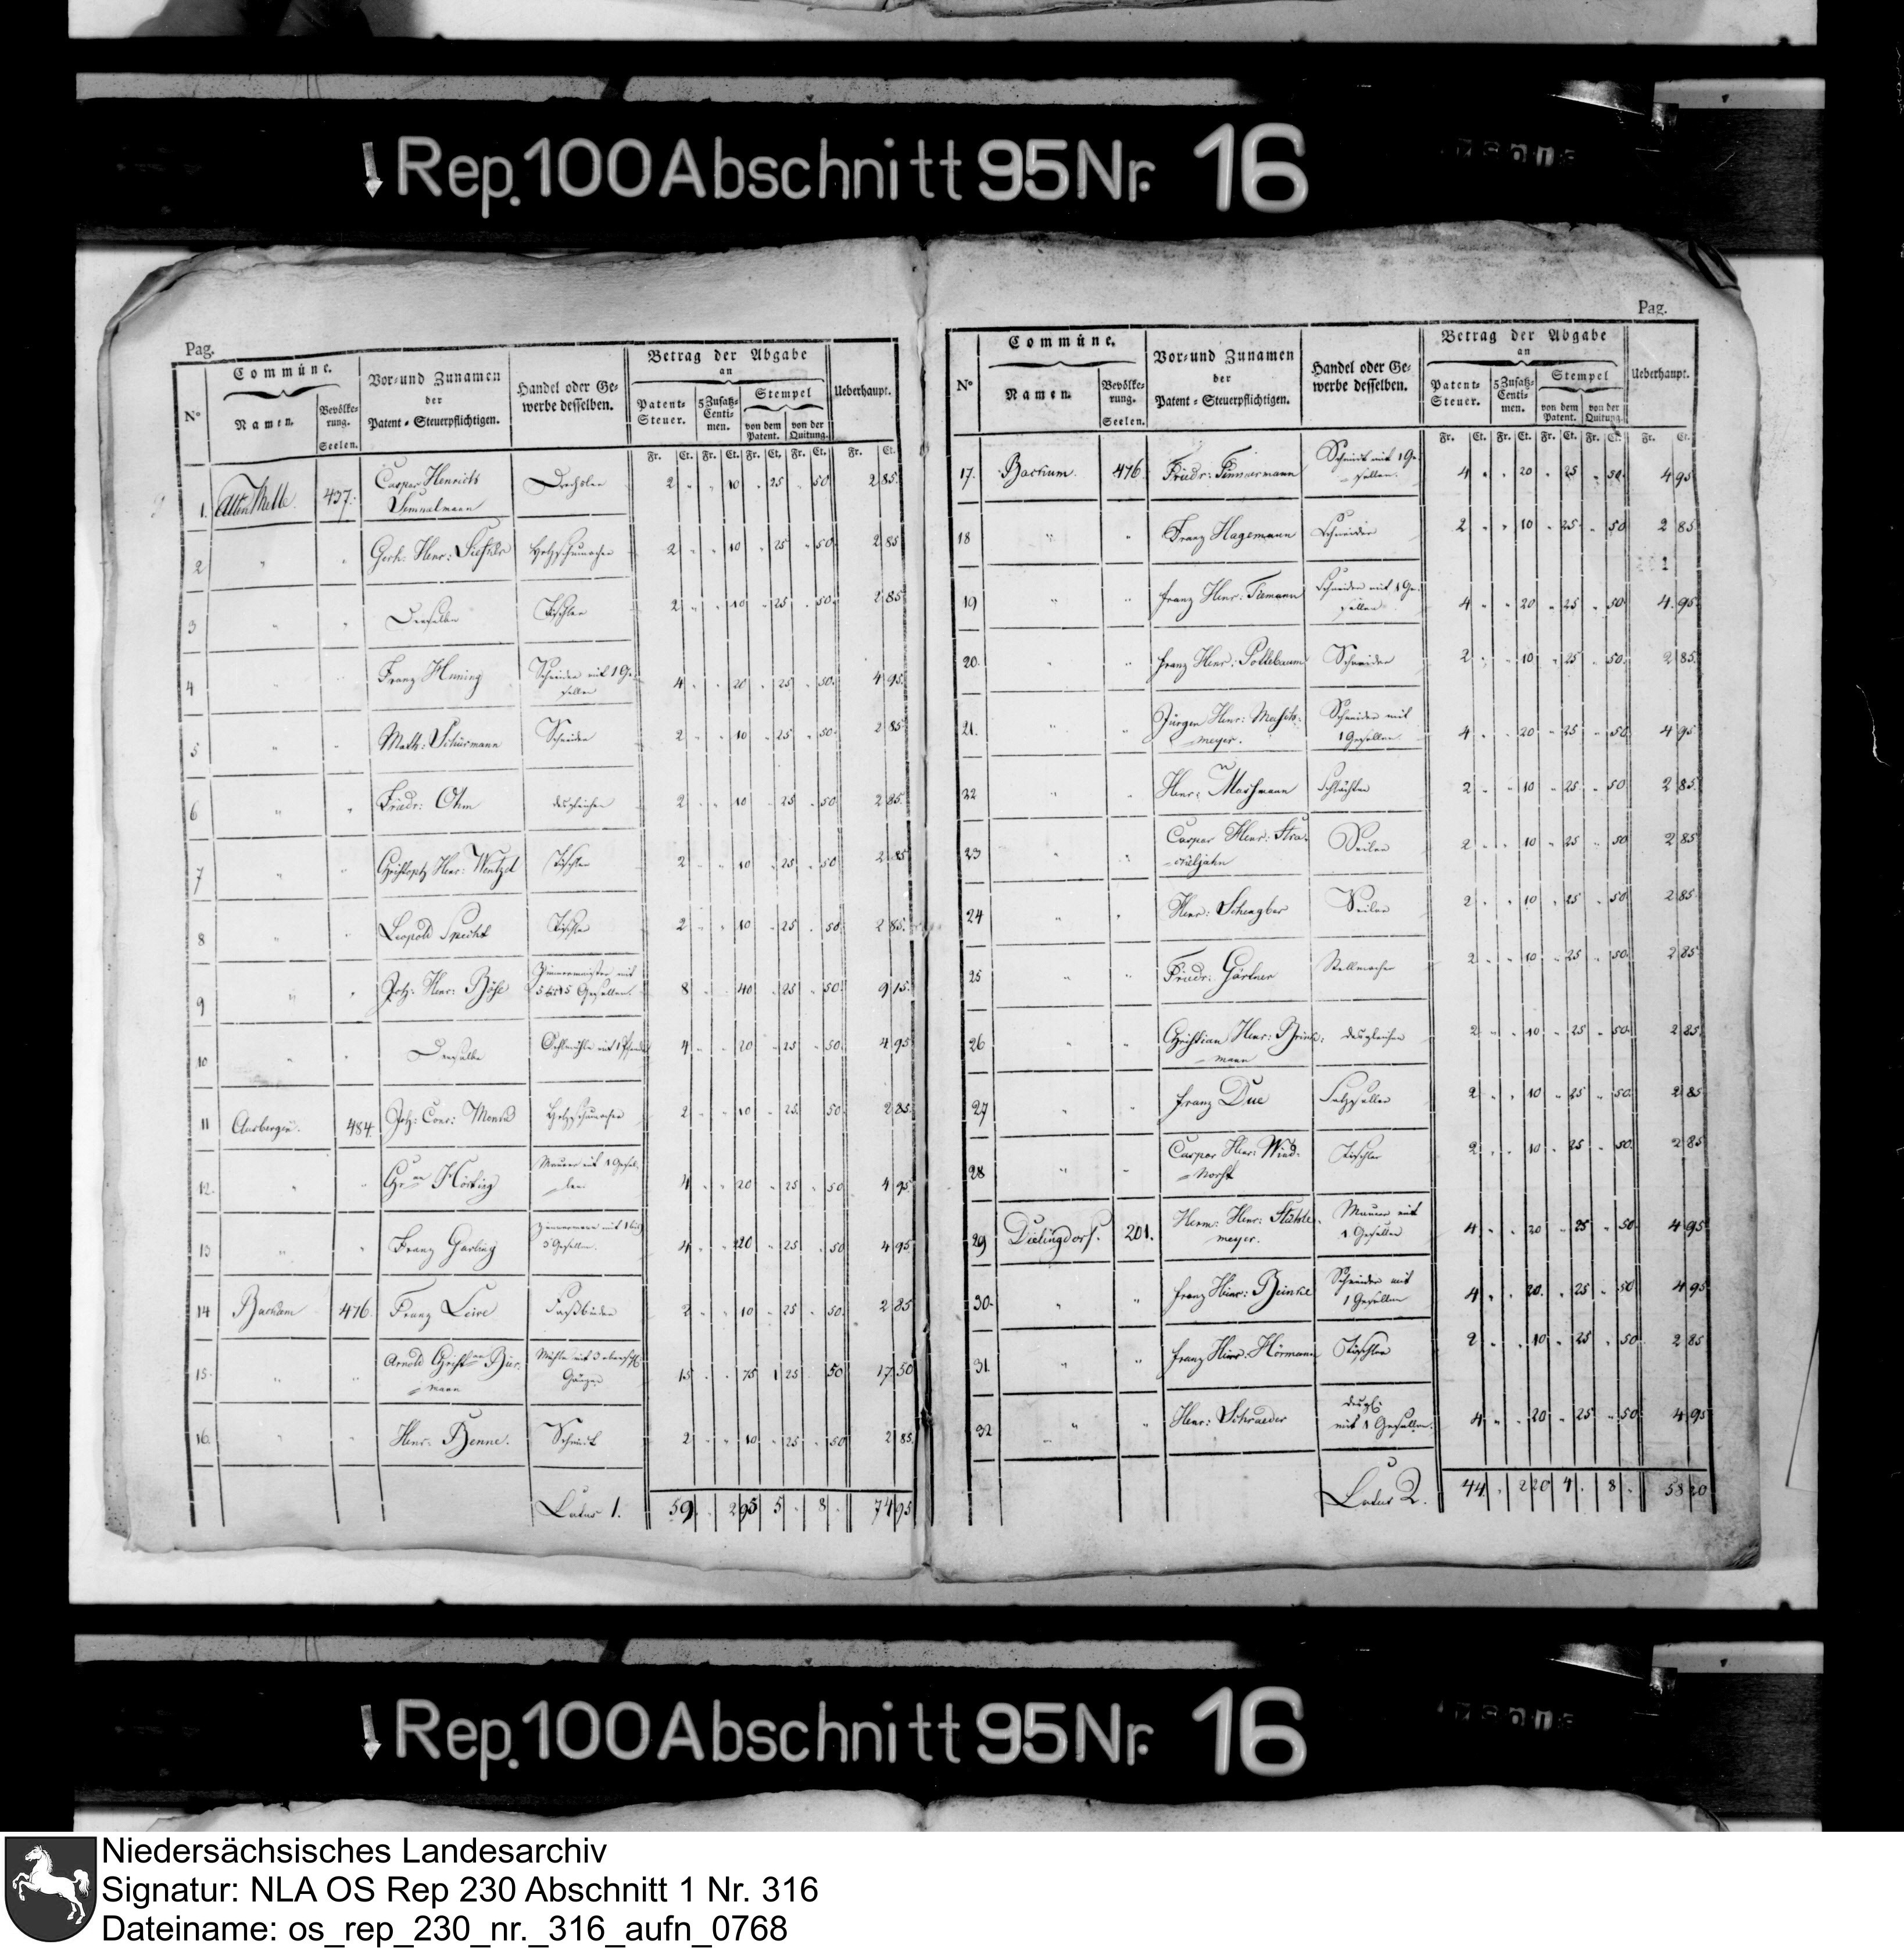 Rep. 100 Abschnitt 95 Nr. 16
Pag.
No
Commúne.
Namen.
Bevölke-
rung.
Seelen.
Vor- und Zunamen
der
Patent-Steuerpflichtigen.
Handel oder Ge-
werbe desselben.
Betrag der Abgabe
an
Patent-
Steuer.
5 Zusatz-
Centi-
men.
Stempel
von dem
Patent.
von der
Quitung.
Ueberhaupt.
Fr. Ct. Fr. Ct. Fr. Ct. Fr. Ct. Fr. Ct.
1. Alten Melle. 437. Caspar Henrich Drechsler 2 " " 10 " 25 " 50 2 85.
2 " " Gerh: Henr: Holzschumacher 2 " " 10 " 25 " 50. 2 85
3 " " Derselbe Tischler 2 " " 10 " 25 " 50. 2 85.
4 " " Franz Huning Schneider mit 1 Ge-
sellen 4 " " 20 " 25 " 50. 4 95.
5 " " Math: Schürmann Schneider 2 " " 10 " 25 " 50. 2 85.
6 " " Friedr: Ohm desgleichen 2 " " 10 " 25 " 50. 2 85.
7 " " Christoph Henr: Wentzel Tischler 2 " " 10 " 25 " 50 2 85
8 " " Leopold Specht Tischler 2 " " 10 " 25 " 50. 2 85.
9 " " Joh: Henr: Böse Zimmermeister mit
Gesellen. 8 " " 40 " 25 " 50. 9 15.
10 " " Derselbe Oehlmühle mit 1 Pferde 4 " " 20 " 25 " 50. 4 95
11 484 Joh: Conr: Holzschumacher 2 " " 10 " 25 50. 2 85.
12. " " Maurer mit 1 Gesel-
len 4 " " 20 " 25 " 50 4 95
13 " " Franz Garling Zimmermann mit 1 bis
3 Gesellen. 4 " " 20 " 25 " 50 4 95
14 476. Franz Faßbinder 2 " " 10 " 25 " 50. 2 85
15. " " Arnold Bür-
mann Mühle mit 3
Gänge 15 " " 75 1 25 50 17 50
16. " " Henr: Benne. Schmidt 2 " " 10 " 25 " 50 2 85.
Latus 1. 59 " 2 95 5 " 8 " 74 95
Pag.
No
Commúne.
Namen.
Bevölke-
rung.
Seelen.
Vor- und Zunamen
der
Patent-Steuerpflichtigen.
Handel oder Ge-
werbe desselben.
Betrag der Abgabe
an
Patent-
Steuer.
5 Zusatz-
Centi-
men.
Stempel
von dem
Patent.
von der
Quitung.
Ueberhaupt.
Fr. Ct. Fr. Ct. Fr. Ct. Fr. Ct. Fr. Ct.
17. Backum. 476 Friedr: Timmermann Schmidt mit 1 Ge-
sellen. 4 " " 20 " 25 " 50. 4 95
18 " " Franz Hagemann Schneider 2 " " 10 " 25 " 50 2 85.
19 " " Franz Henr: Tiemann Schneider mit 1 Ge-
sellen 4 " " 20 " 25 " 50 4. 95
20. " " Franz Henr: Pottebaum Schneider 2 " " 10 " 25 " 50. 2 85.
21. " " Jürgen Henr:
meyer. Schneider mit
1 Gesellen. 4 " " 20 " 25 " 50 4 95
22 " " Henr: Schlächter 2 " " 10 " 25 " 50 2 85.
23 " " Caspar Henr: Seiler 2 " " 10 " 25 " 50 2 85
24 " " Henr: Schengber Seiler 2 " " 10 " 25 " 50 2 85
25 " " Friedr: Gärtner Stellmacher 2 " " 10 " 25 " 50. 2 85
26 " " Christian Henr: Brink-
mann desgleichen 2 " " 10 " 25 " 50. 2 85.
27 " " Franz Due 2 " " 10 " 25 " 50. 2 85
28 " " Caspar Henr: Wind-
horst Tischler 2 " " 10 " 25 " 50. 2 85
29 Dielingdorf. 201. Herm: Henr: Stahle-
meyer. Maurer mit
1 Gesellen 4 " " 20 " 25 " 50. 4 95
30. " " Franz Henr: Beinke Schneider mit
1 Gesellen 4 " " 20. " 25 " 50 4 95
31. " " Franz Henr: Hörmann Tischler 2 " " 10 " 25 " 50. 2 85
32 " " Henr: Schraeder desgl:
mit 1 Gesellen. 4 " " 20 " 25 " 50 4 95
Latus 2. 44 " 2 20 4 " 8 " 58 20
Rep. 100 Abschnitt 95 Nr. 16
Niedersächsisches Landesarchiv
Signatur: NLA OS Rep 230 Abschnitt 1 Nr. 316
Dateiname: os_rep_230_nr._316_aufn_0768